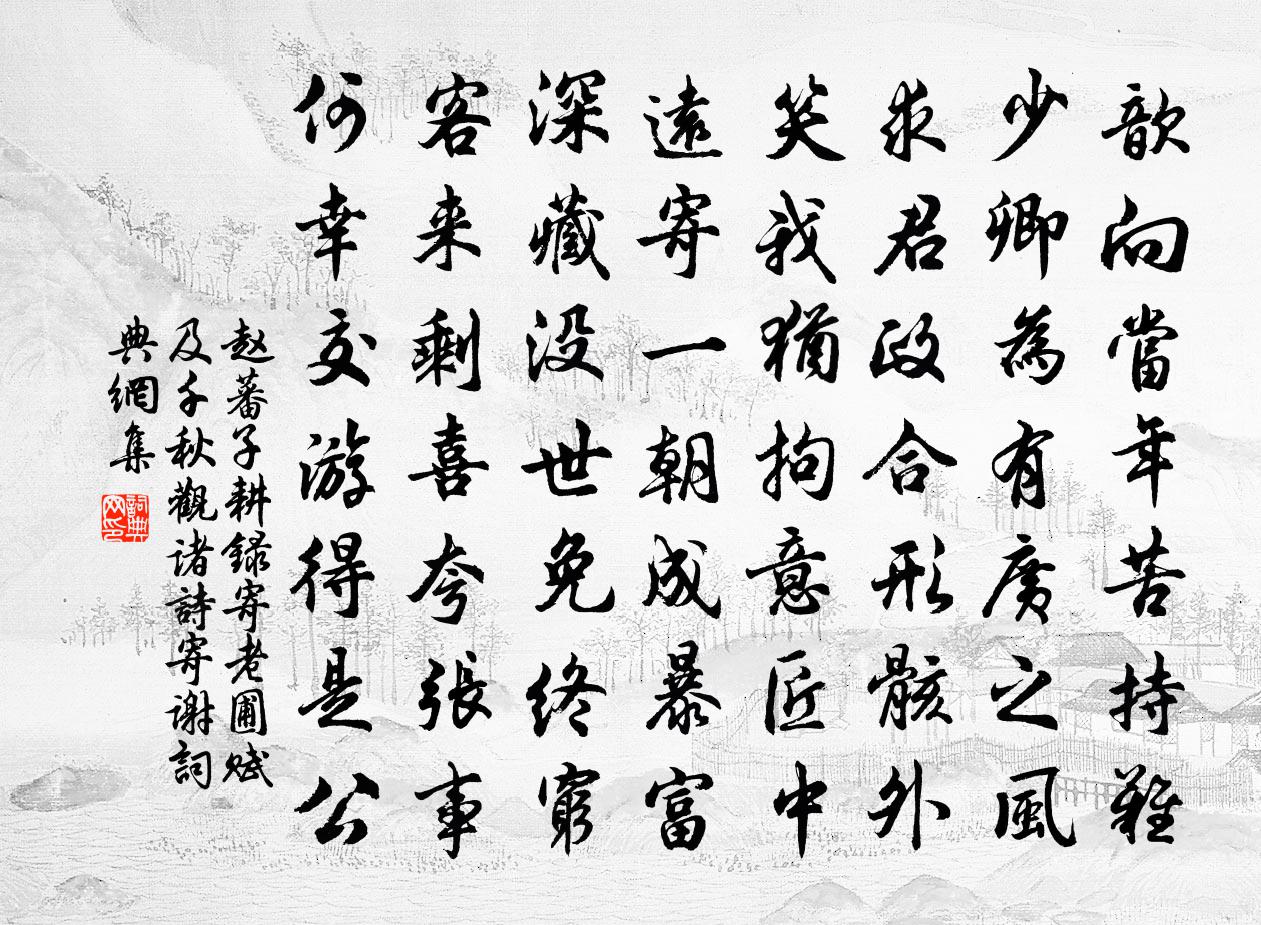 歆向當年苦持難
少卿為有廣之風
求君政合形骸外
笑我猶拘意匠中
遠寄一朝成暴富
深藏没世免終窮
客来剩喜夸張事
何幸交游得是公
赵蕃子耕録寄老圃赋
及千秋觀诸詩寄谢詞
典網集
詞典
网印